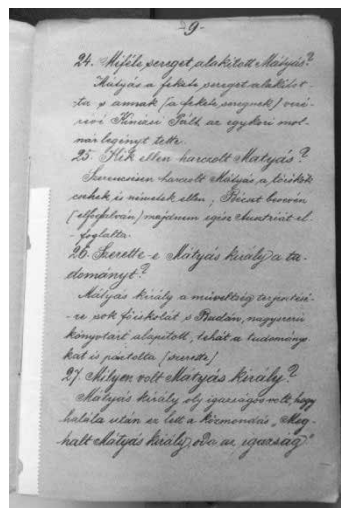 -9-
24. Miféle sereget alakított Mátyás?
Mátyás a fekete sereget alakitot-
ta s annak (a fekete seregnek) vezé-
révé Kinizsi Pált az egykori mol-
nárlegényt tette.
25. Kik ellen harcolt Mátyás?
Szerencsésen harcolt Mátyás a törökök
csehek és németek ellen, Bécset bevevén
(elfoglalván) majdnem egész Austriát el-
foglalta.
26. Szerette-e Mátyás király a tu-
dományt?
Mátyás király a műveltség terjeszté-
re sok főiskolát s Budán, nagyszerű
könyvtárt alapitott, tehát a tudomány
kat is pártolta (szerette)
27. Milyen volt Mátyás király?
Mátyás király oly igazságos volt, hogy
halála után ez lett a közmondás „Meg-
halt Mátyás király, oda az igazság"